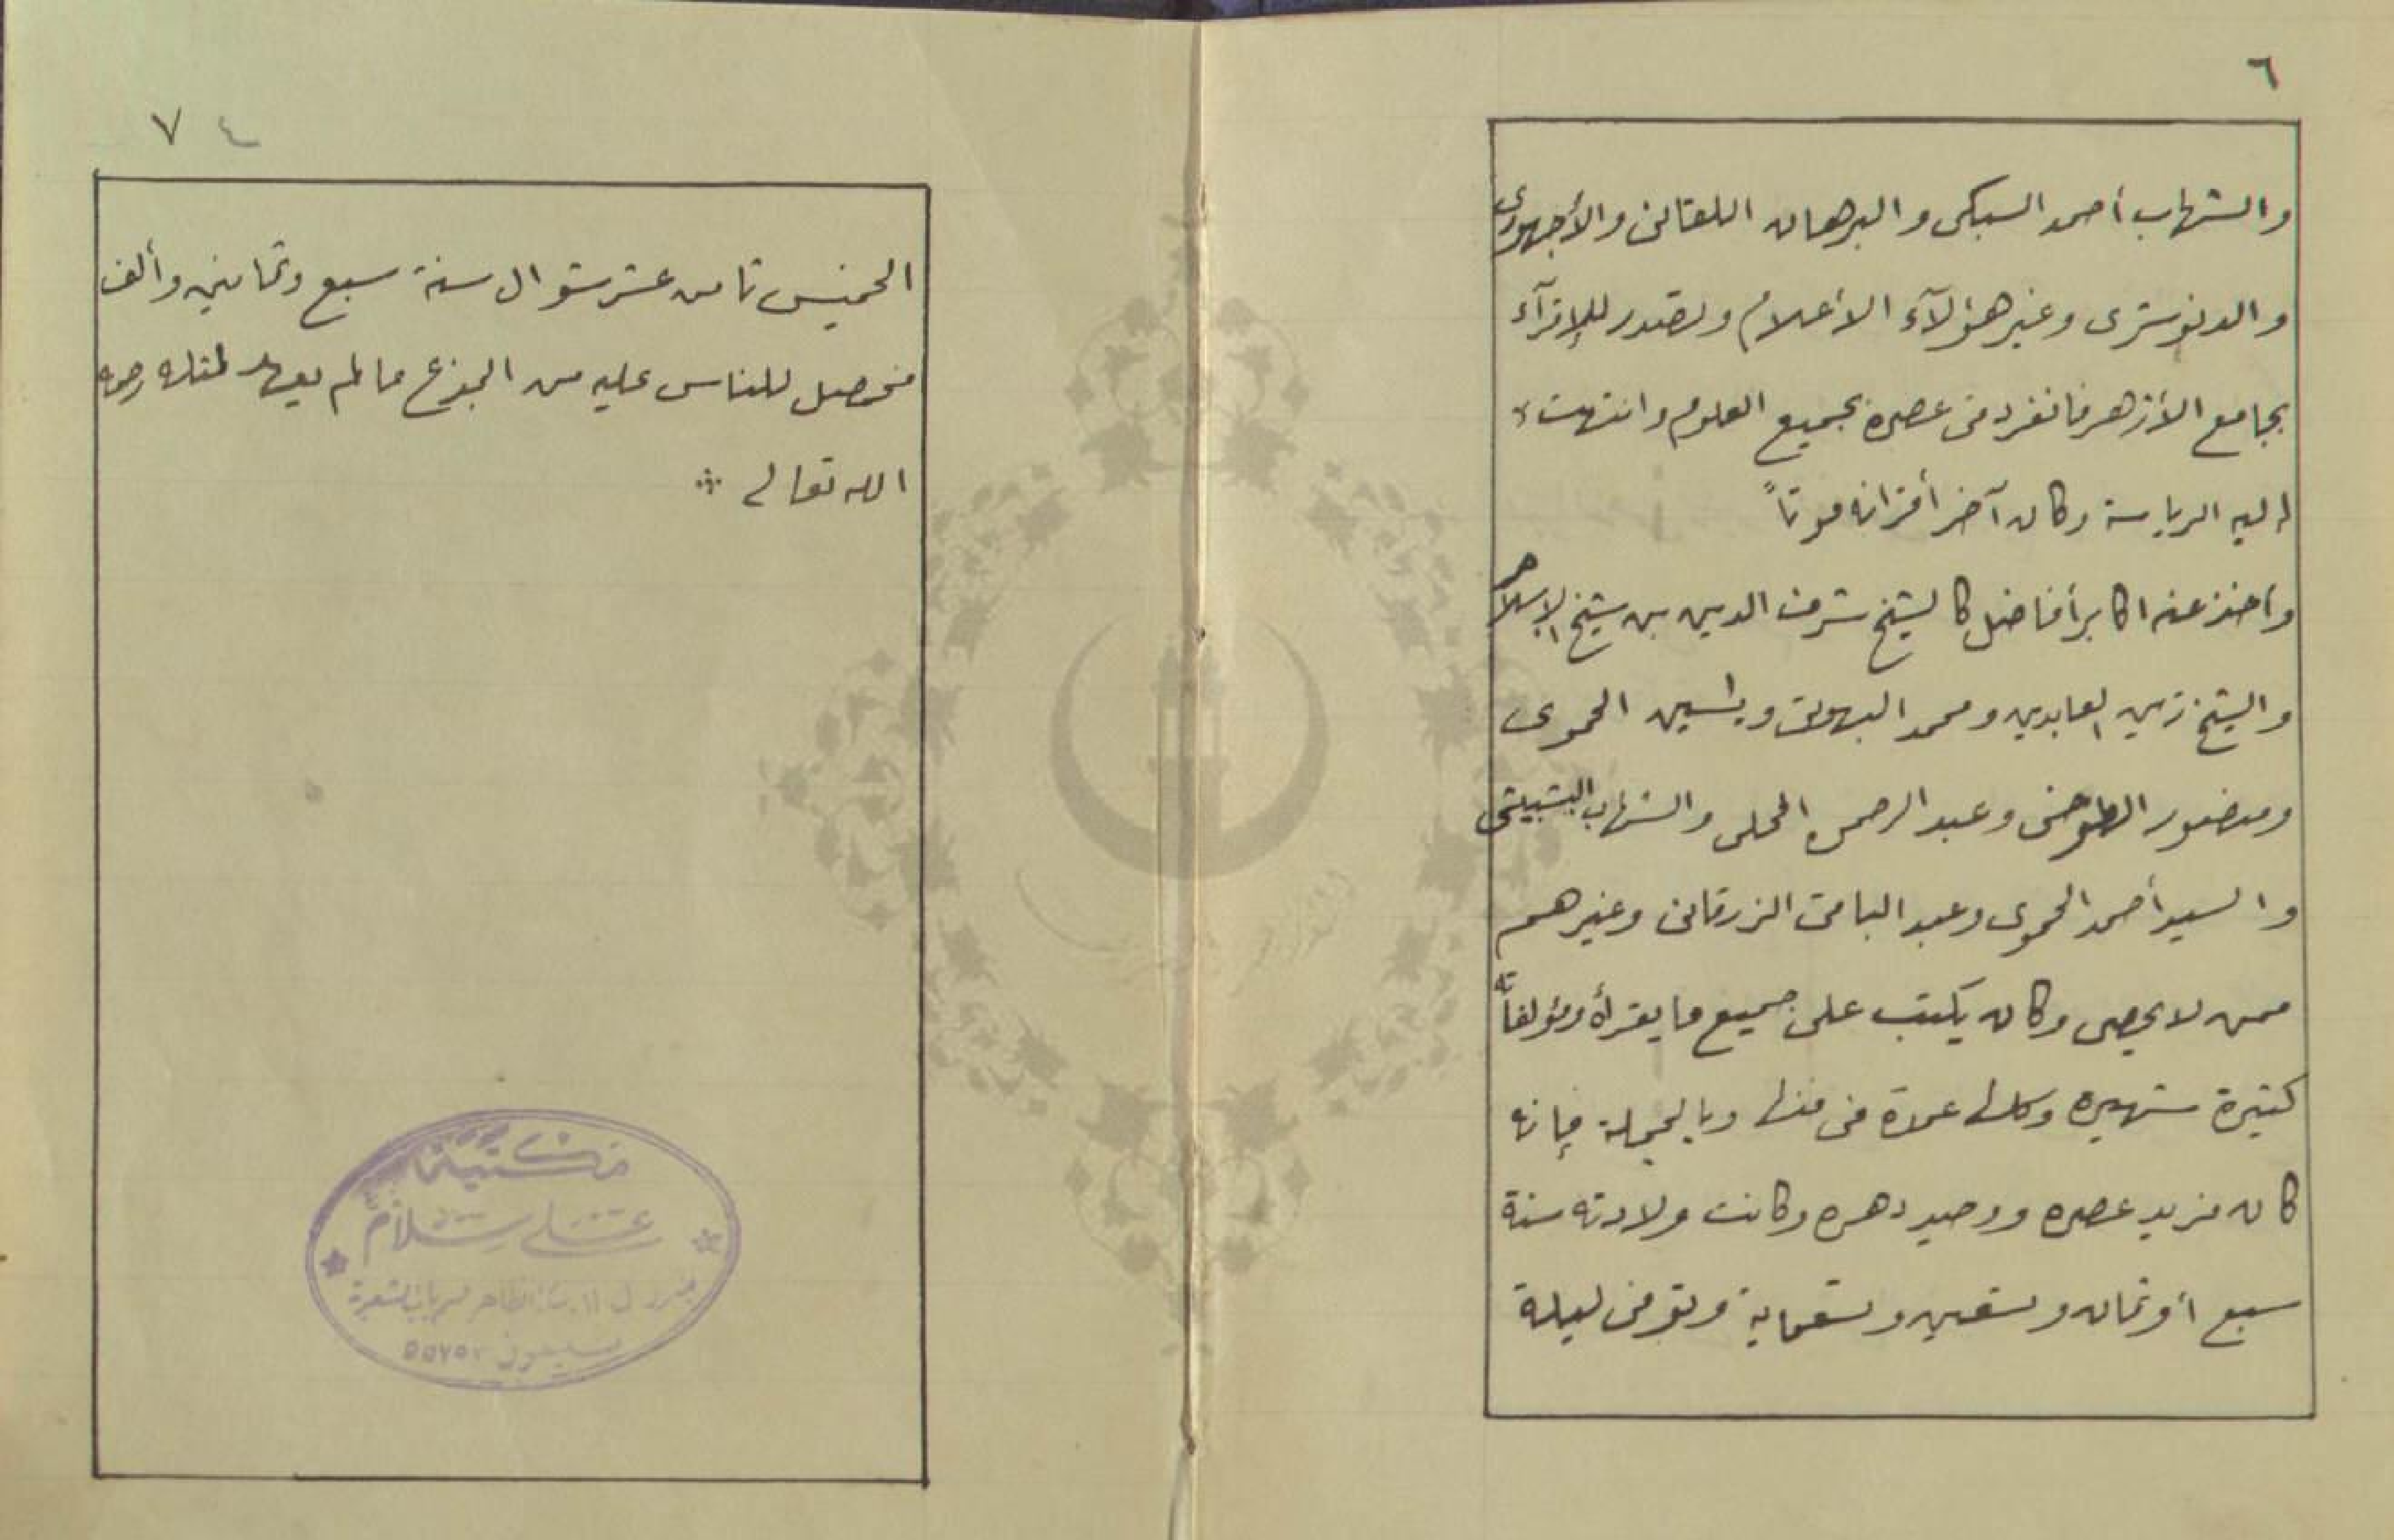 ٦
والشهاب أحمد السبكى والبرهان اللقانى والأجهورى
والدنوشرى وغير هؤلآء الأعلام وتصدر للإقرآء
بجامع الأزهر فانفرد فى عصره بجميع العلوم وانتهت
إليه الرياسة وكان آخر أقرانه موتاً
وأخذ عنه اكابر أفاضل كالشيخ شرف الدين بن شيخ الإسلام
والشيخ زين العابدين ومحمد البهوتى ويٰسين الحموى
ومنصور الطوخى وعبد الرحمن المحلى والشهاب البشبيشى
والسيد أحمد الحموى وعبد الباقى الزرقانى وغيرهم
ممن لا يحصى وكان يكتب على جميع ما يقرأه ومؤلفاته
كثيرة شهيره وكلها عمدة فى فنها وبالجملة فإنه
كان فريد عصره ووحيد دهره وكانت ولادته سنة
سبع أو ثمان وتسعين وتسعماية وتوفى ليلة
٧ ٤
الخميس ثامن عشر شوال سنة سبع وثمانين وألف
فحصل للناس عليه من الجزع مالم يعهد لمثله رحمه
الله تعالى
مكتبة
على سلام